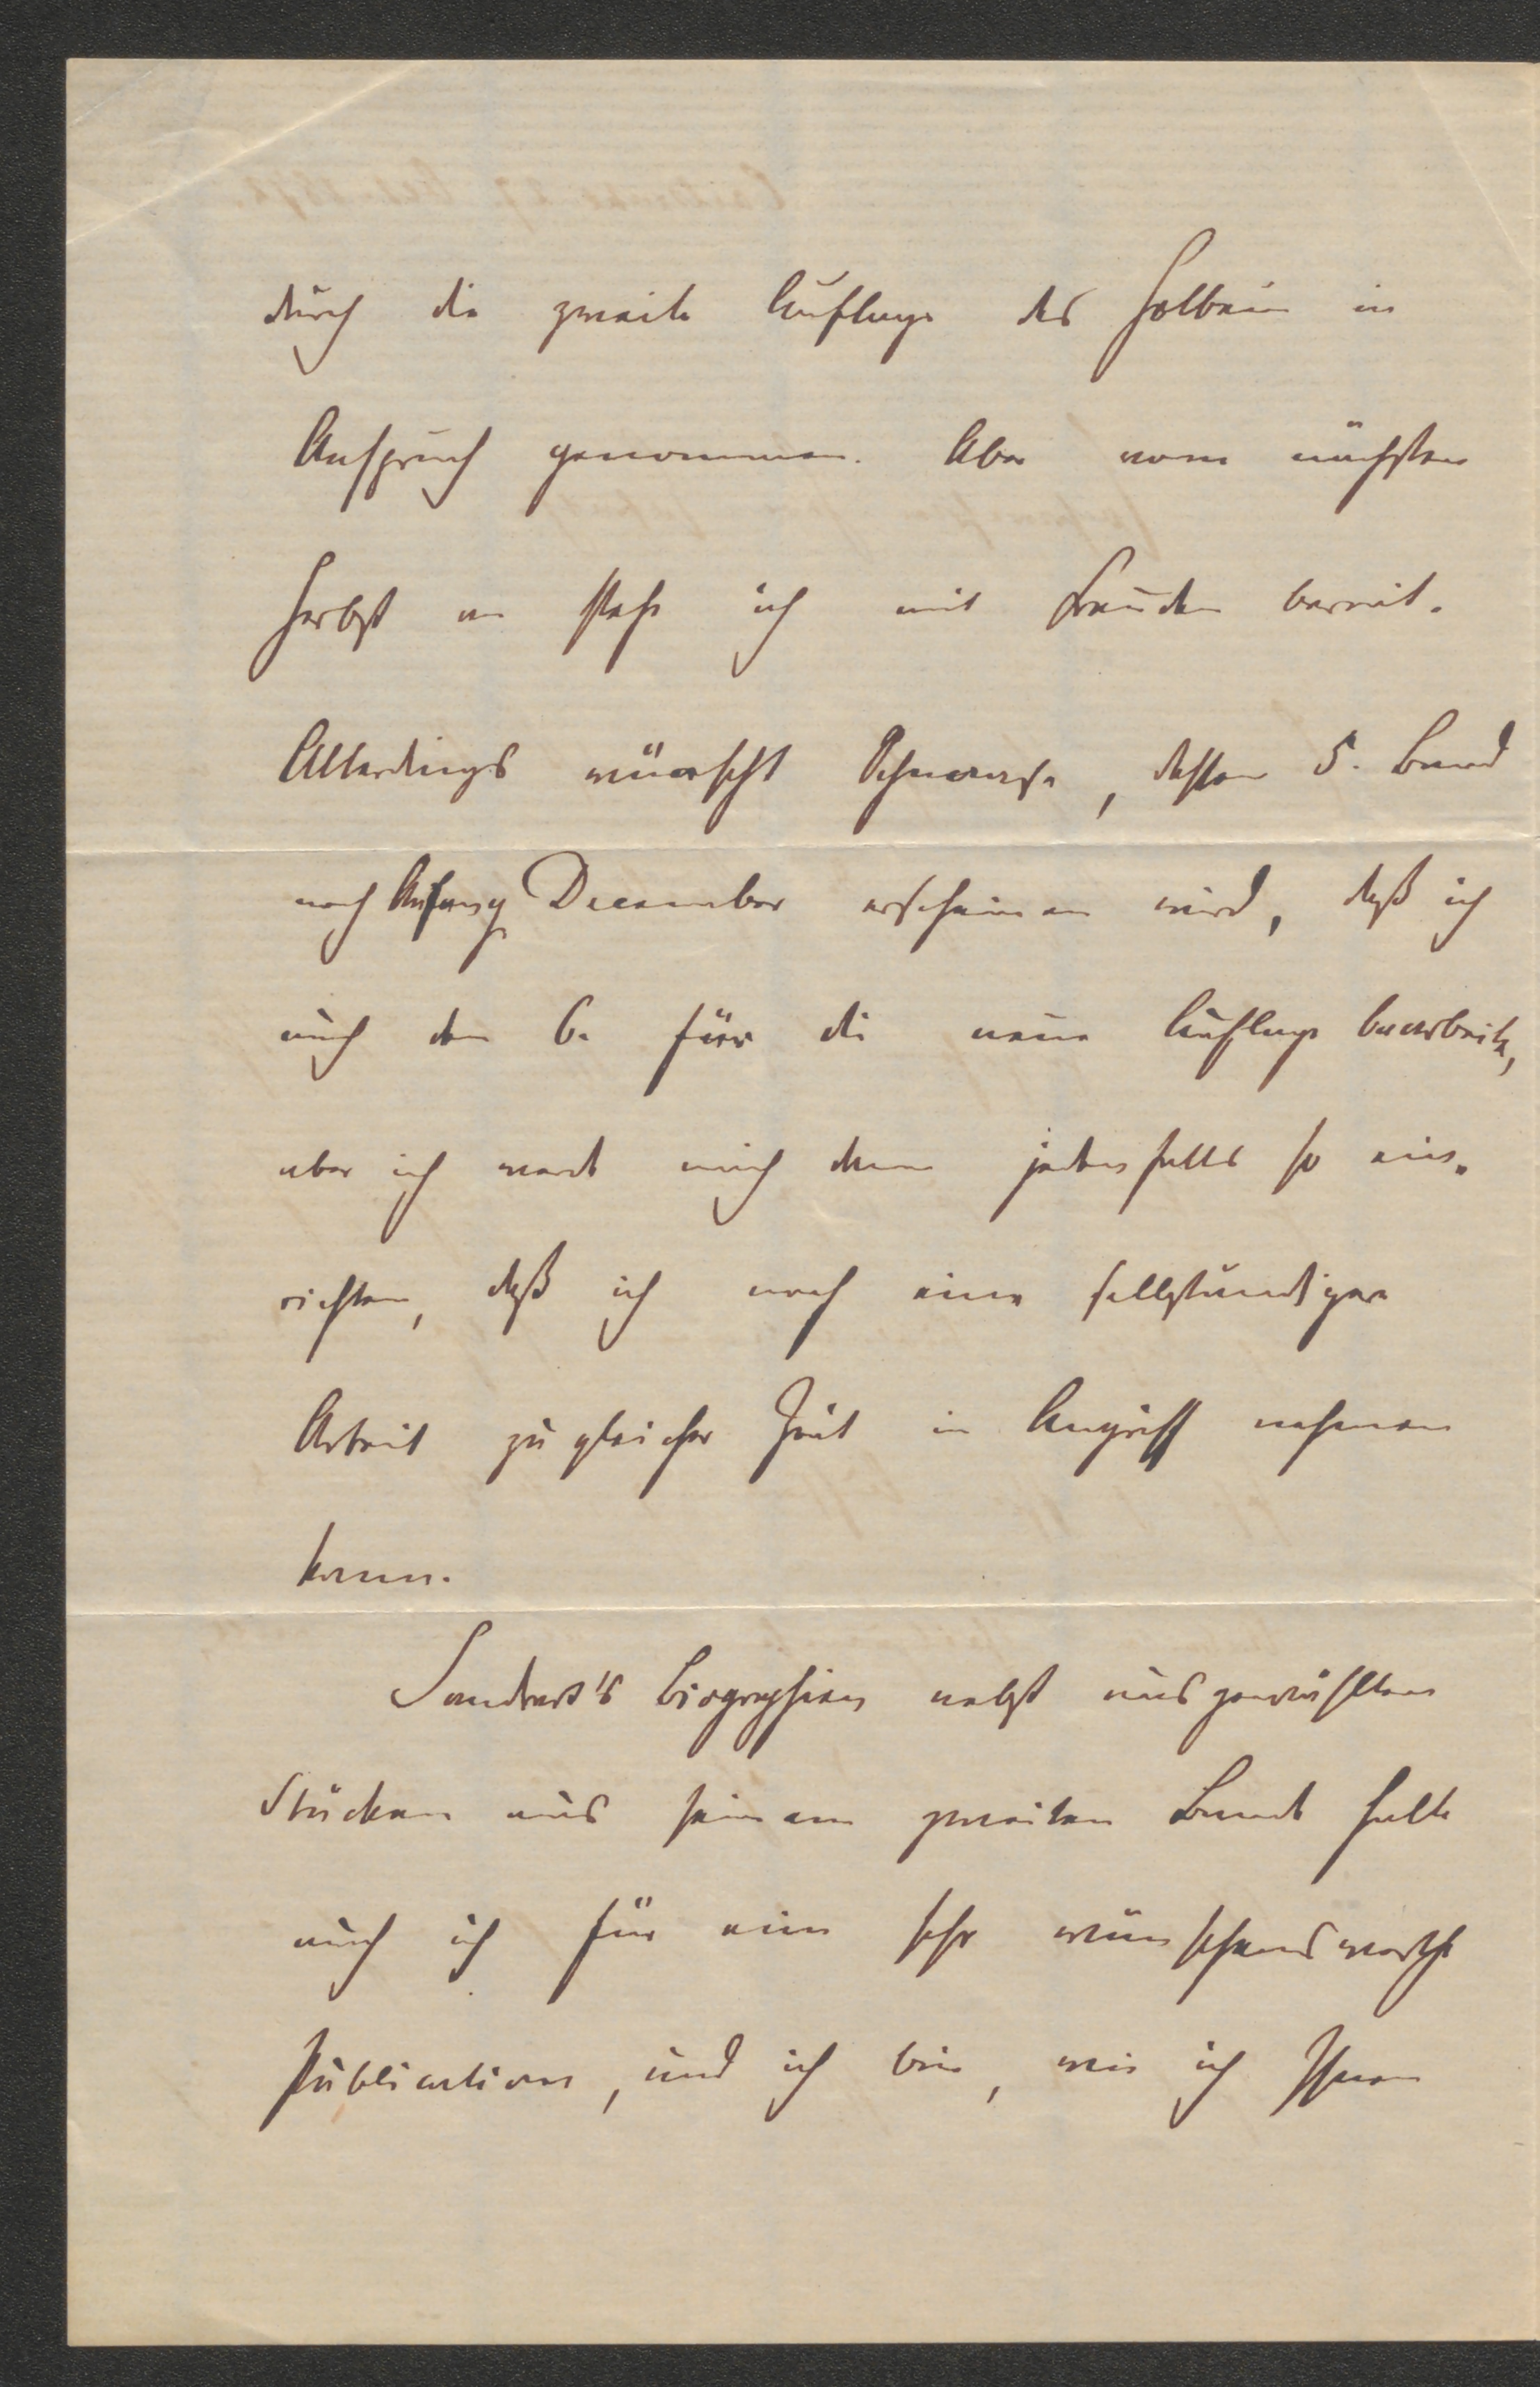 durch die zweite Auflage des Holbein in
Anspruch genommen. Aber vom nächsten
Herbst an stehe ich mit Freuden bereit.
Allerdings wünscht Schnaase, dessen 5. Band
noch Anfang December erscheinen wird, daß ich
auch den 6. für die neue Auflage bearbeite,
aber ich werde mich dann jedenfalls so ein-
richten, daß ich noch eine selbständigere
Arbeit zu gleicher Zeit in Angriff nehmen
kann.
Sandrart's Biographien nebst ausgewählten
Stücken aus seinem zweiten Bande halte
auch ich für eine sehr wünschenswerthe
Publication, und ich bin, wie ich Ihnen